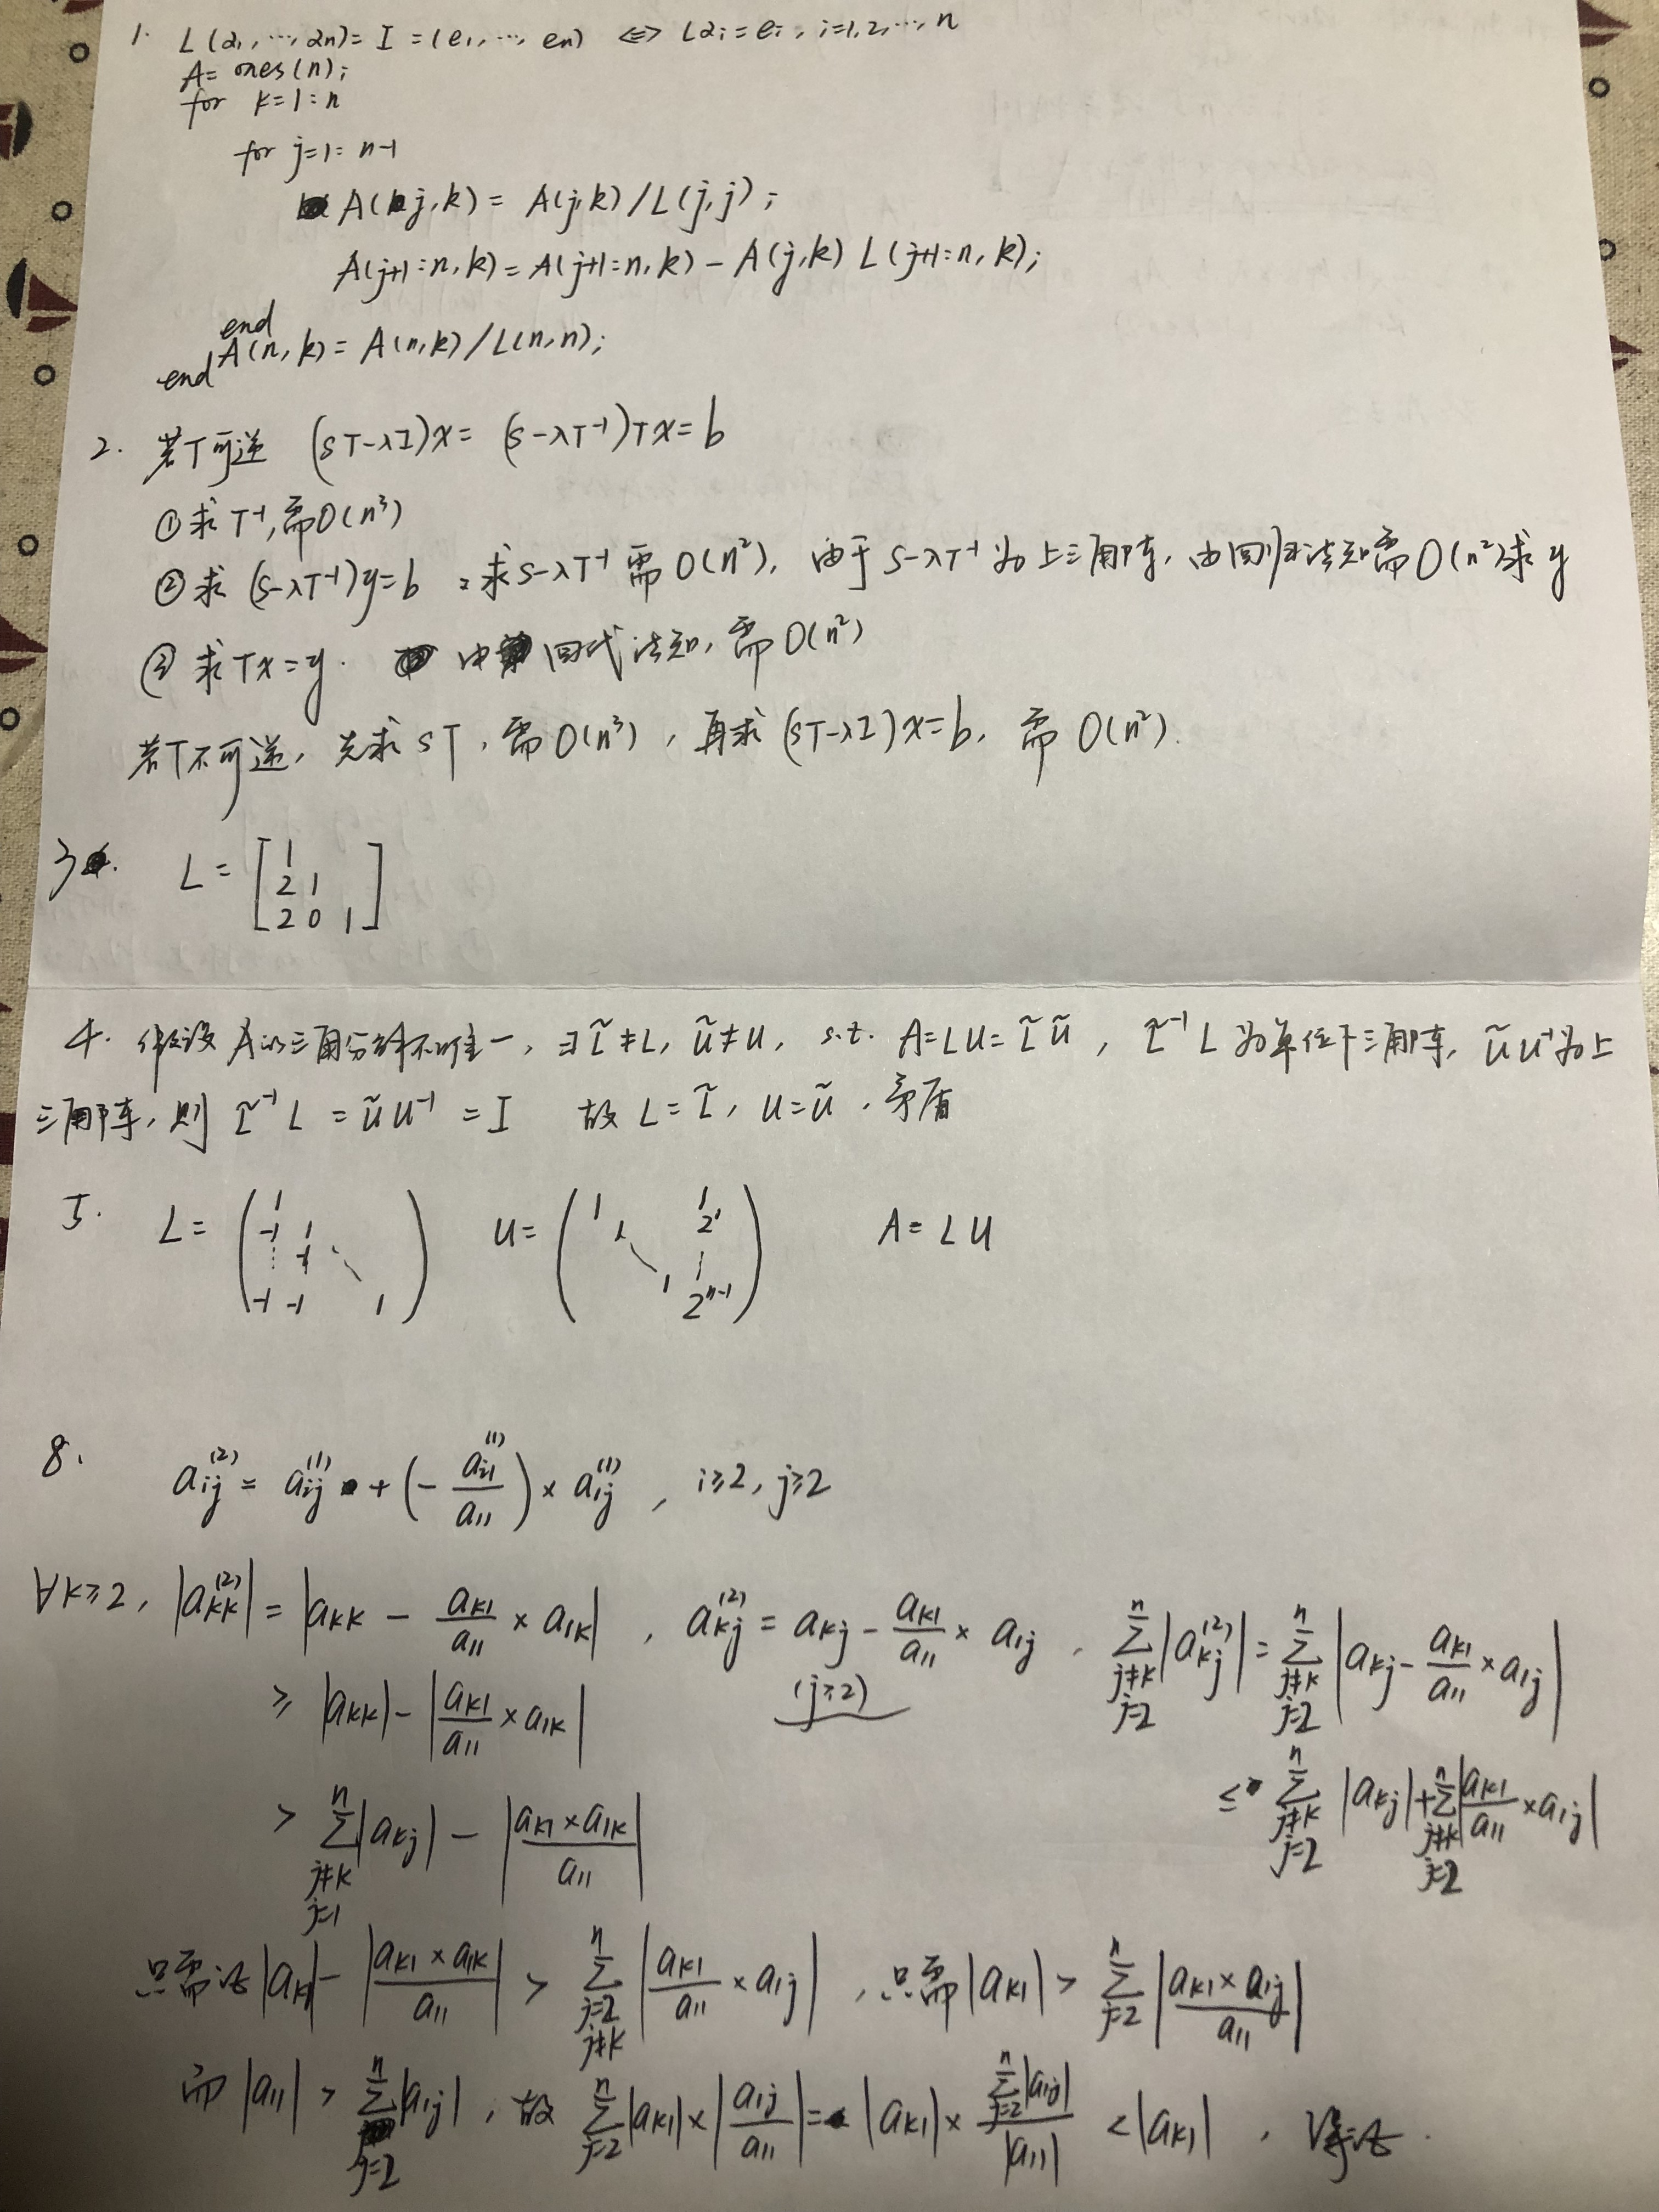 1. L(α₁,…,αn)= I =(e₁,…, en) ⟺ Lαi=ei, i=1,2,…,n
A= ones(n);
for k=1:n
for j=1:n-1
A(j,k)= A(j,k)/L(j,j);
A(j+1:n,k)=A(j+1:n,k)-A(j,k) L(j+1:n,k);
end
A(n,k)= A(n,k)/L(n,n);
end
2. 若T可逆 (ST-λI)x= (S-λT⁻¹)Tx=b
①求T⁻¹,需O(n³)
②求 (S-λT⁻¹)y=b :求S-λT⁻¹ 需 O(n²), 由于 S-λT⁻¹ 为上三角阵, 由回归法知需O(n²)求y
③求Tx=y. 由回代法知,需O(n²)
若T不可逆, 先求ST,需O(n³), 再求(ST-λI)x=b, 需O(n²).
3. L= [ 1
2 1
2 0 1 ]
4. 假设A的三角分解不唯一, ∃L̃≠L, Ũ≠U, s.t. A=LU=L̃Ũ, L̃⁻¹L为单位下三角阵, ŨU⁻¹为上
三角阵, 则 L̃⁻¹L = ŨU⁻¹ = I 故 L=L̃, U=Ũ, 矛盾
5. L= ( 1 U= ( 1 1 A= LU
-1 1 1 2¹
⋮ -1 ⋱ ⋱ ⋮
-1 -1 1 ) 1 2ⁿ⁻¹ )
8. aij⁽²⁾ = aij⁽¹⁾ + (- ai1⁽¹⁾/a11) × a1j⁽¹⁾, i≥2, j≥2
∀k≥2, |akk⁽²⁾| = |akk - ak1/a11 × a1k|, akj⁽²⁾ = akj - ak1/a11 × a1j, (j≥2) Σ(j≠k, j=2)ⁿ |akj⁽²⁾| = Σ(j≠k, j=2)ⁿ |akj - ak1/a11 × a1j|
≥ |akk| - |ak1/a11 × a1k|
≤ Σ(j≠k, j=2)ⁿ |akj| + Σ(j≠k, j=2)ⁿ |ak1/a11 × a1j|
> Σ(j≠k, j=1)ⁿ |akj| - |ak1×a1k / a11|
只需证|ak1| - |ak1×a1k / a11| > Σ(j=2, j≠k)ⁿ |ak1/a11 × a1j|, 只需|ak1| > Σ(j=2)ⁿ |ak1×a1j / a11|
而|a11| > Σ(j=2)ⁿ |a1j|, 故 Σ(j=2)ⁿ |ak1|×|a1j/a11| = |ak1| × Σ(j=2)ⁿ|a1j| / |a11| < |ak1|, 得证.